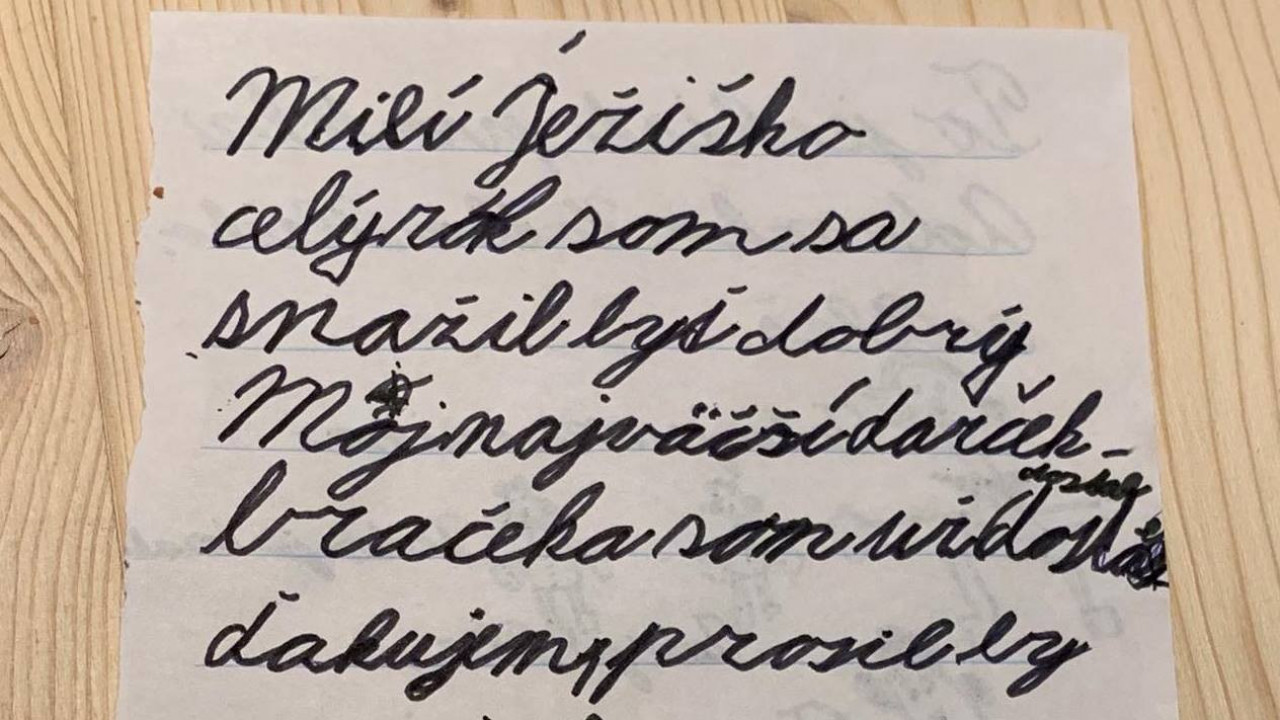 Milí Ježiško
celý rok som sa
snažil byť dobrý
Môj najväčší darček-
bračeka som už dostal
ďakujem, prosil by